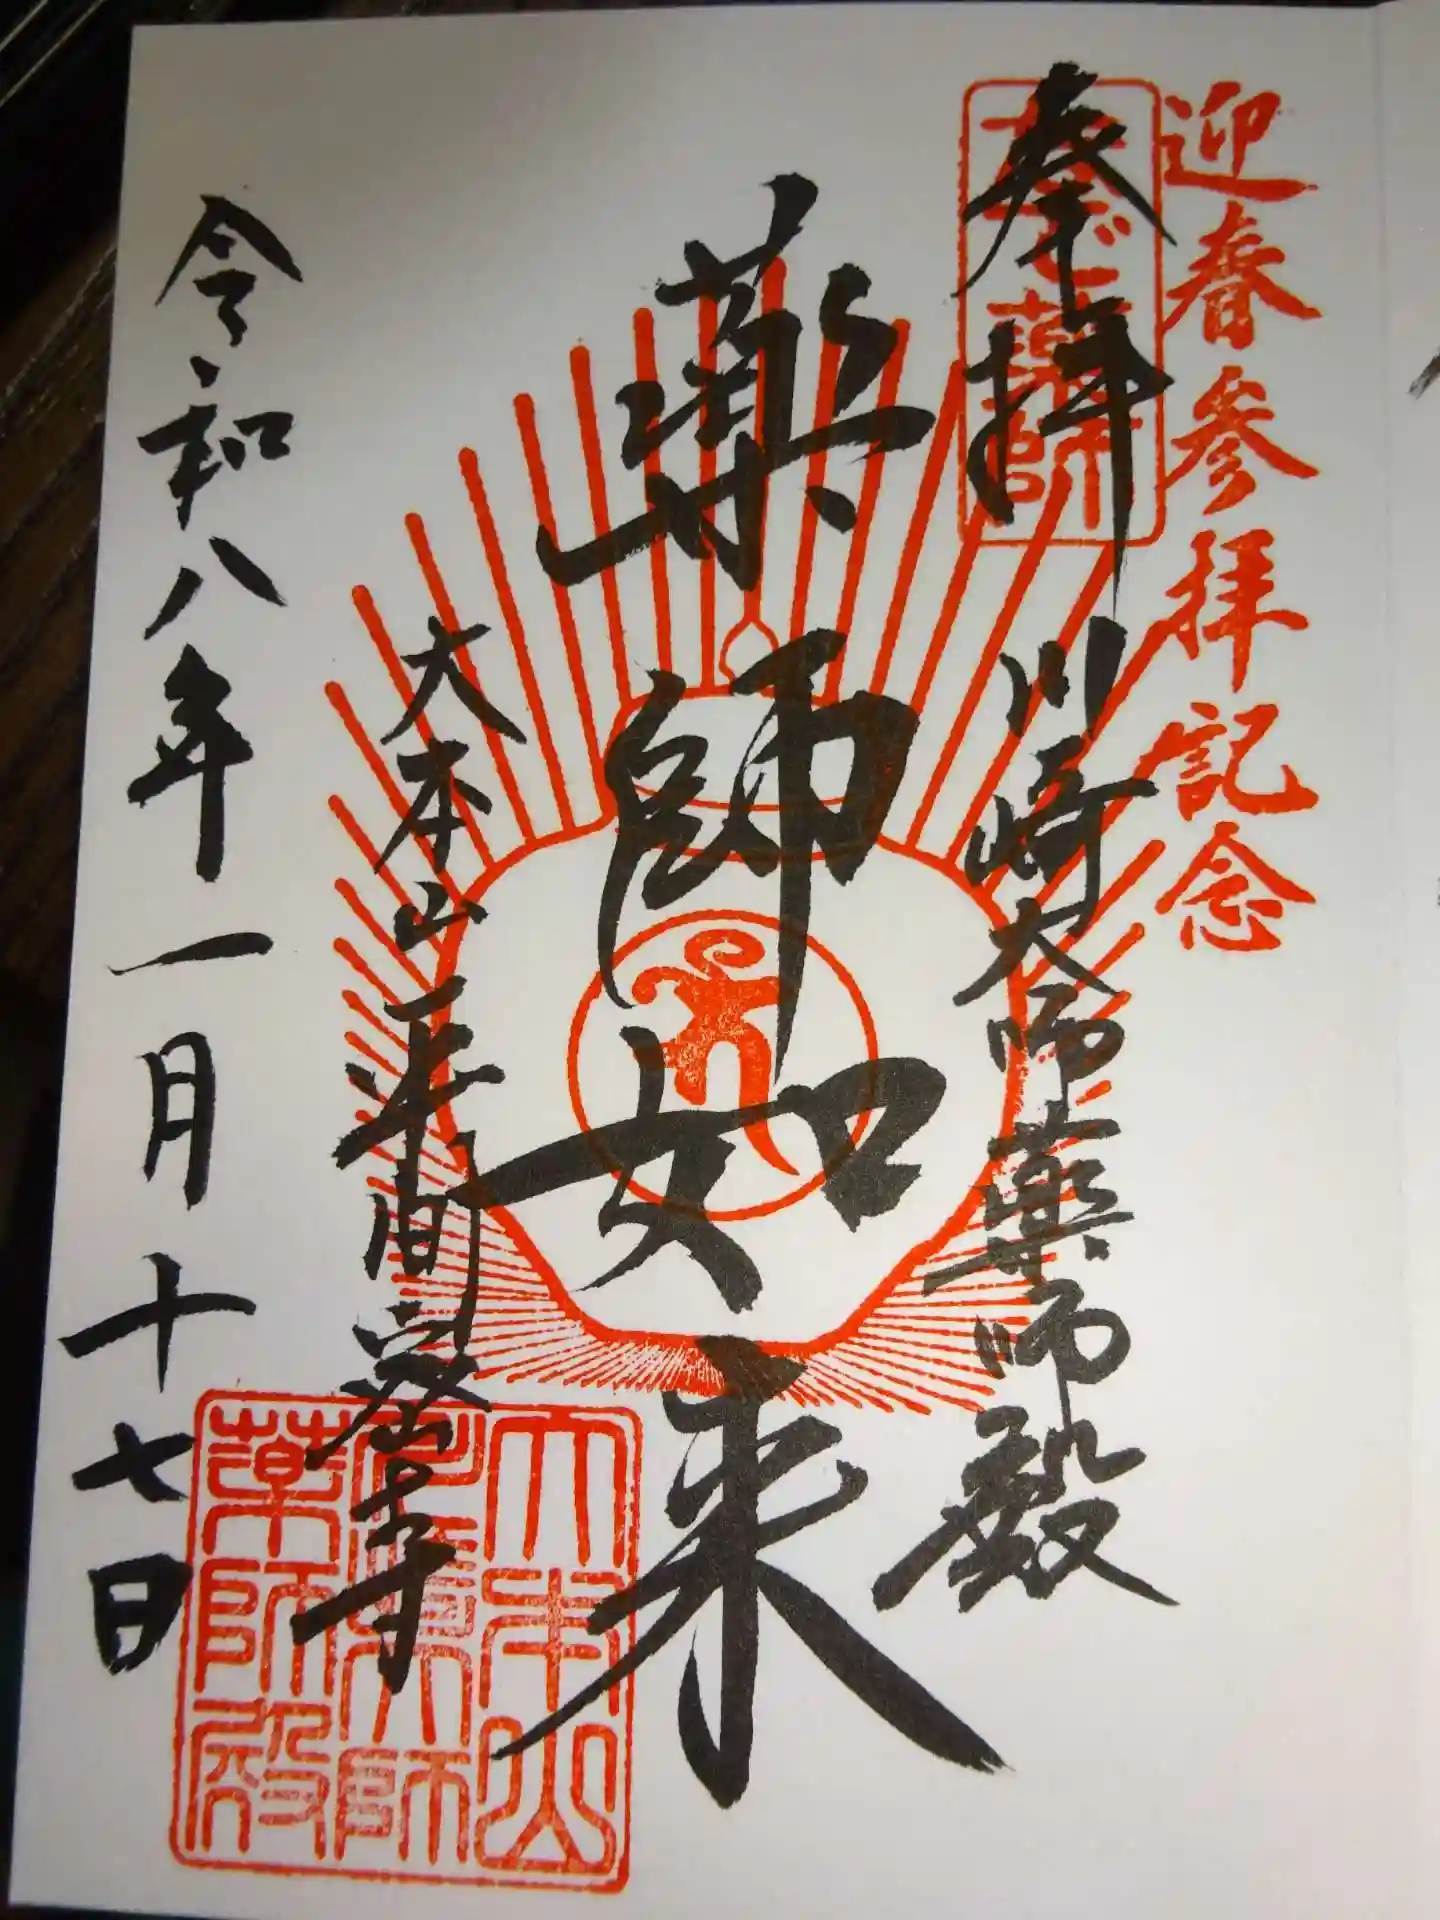 迎春参拝記念
奉拝
なで薬師
川崎大師薬師殿
薬師如来
大本山平間密寺
令和八年一月十七日
大本山
薬師殿